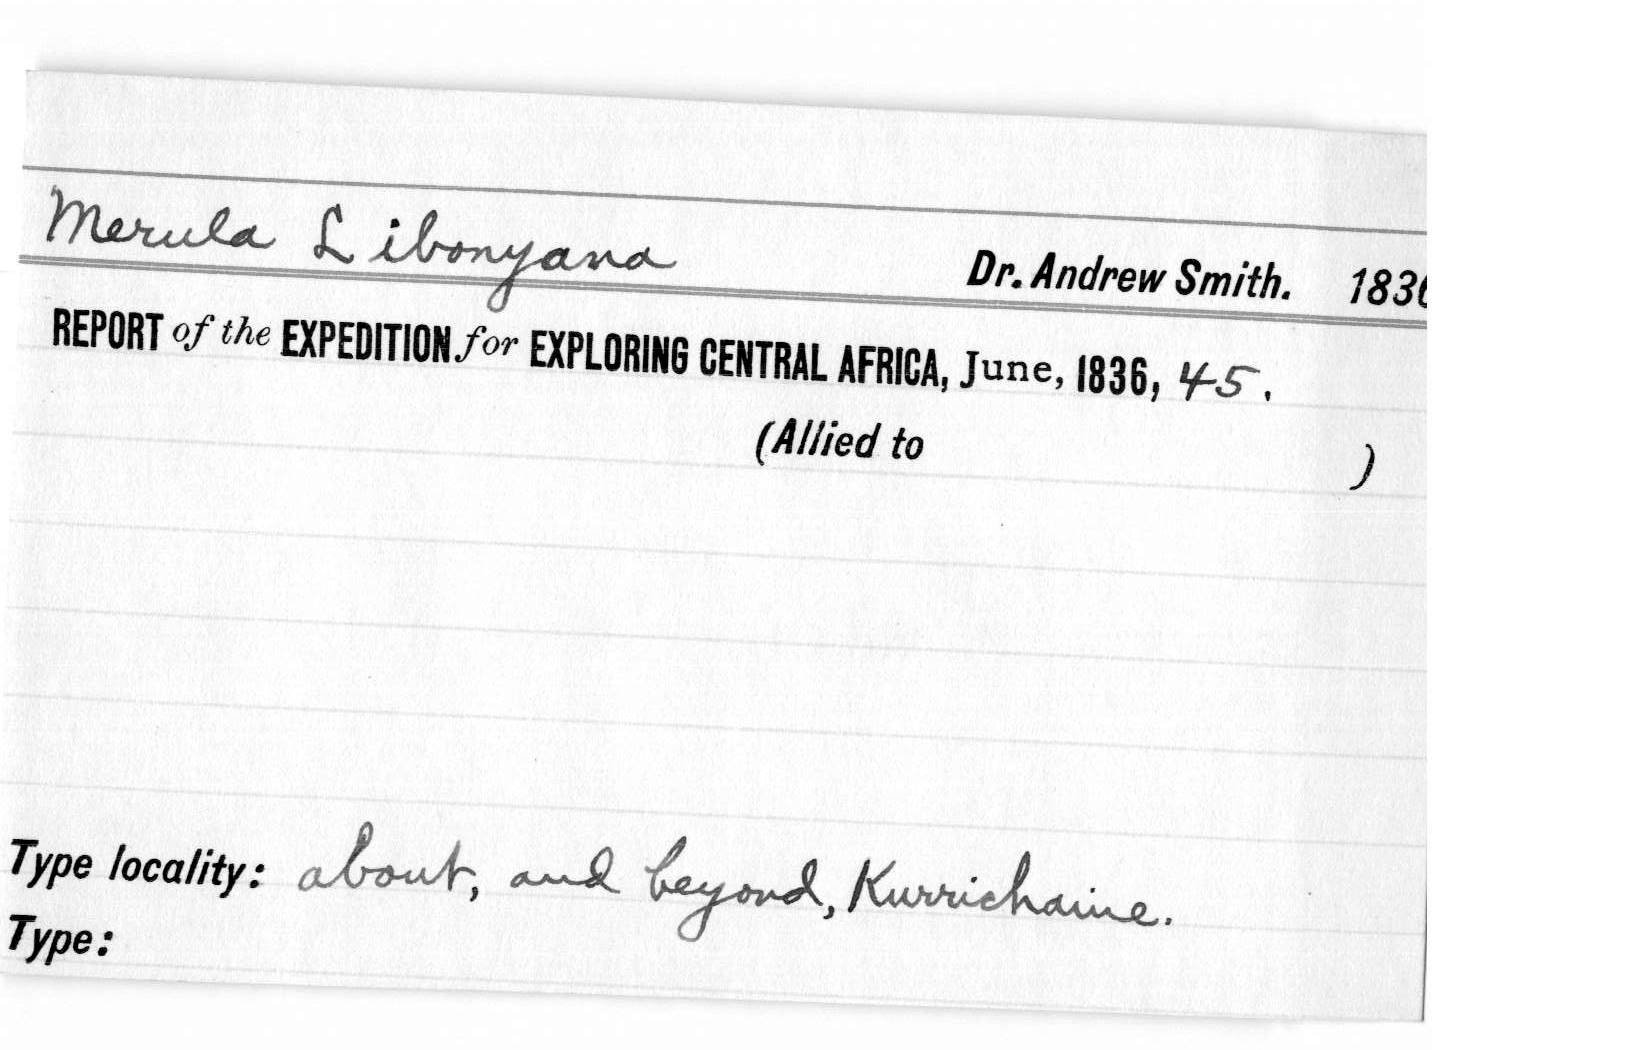 Merula Libonyana Dr. Andrew Smith. 1836
REPORT of the EXPEDITION for EXPLORING CENTRAL AFRICA, June, 1836, 45.
(Allied to )
Type locality: about, and beyond, Kurrichaine.
Type: